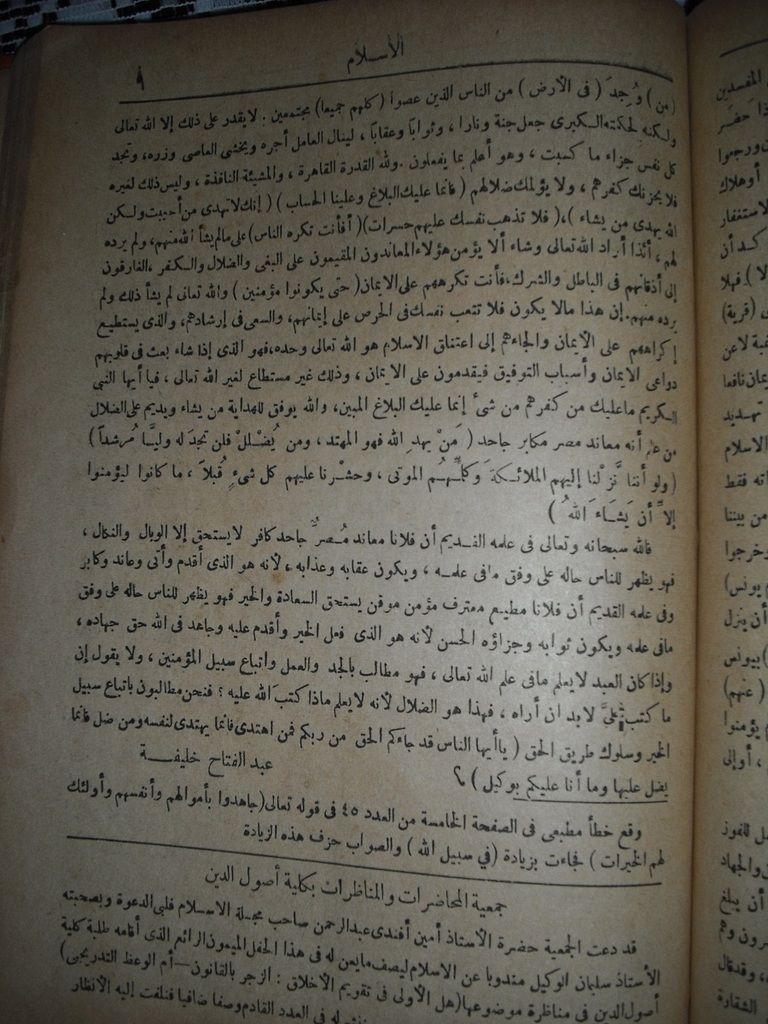 الاسلام
٩
(من) وُجدَ ( فى الأرض ) من الناس الذين عصوا ( كلهم جميعا) مجتمعين : لا يقدر على ذلك إلا الله تعالى
ولكنه لحكمته الكبرى جعل جنة ونارا ، وثوابا وعقابا ، لينال العامل أجره ويخشى العاصى وزره، وتجد
كل نفس جزاء ما كسبت ، وهو أعلم بما يفعلون . ولله القدرة القاهرة ، والمشيئة النافذة ، وليس ذلك لغيره
فلا يحزنك كفرهم ، ولا يؤلمك ضلالهم ( فانما عليك البلاغ وعلينا الحساب ) ( إنك لا تهدى من أحببت ولكن
الله يهدى من يشاء )، ( فلا تذهب نفسك عليهم حسرات)( أفأنت تكره الناس) على مالم يشأ الله منهم، ولم يرده
لهم ، أئذا أراد الله تعالى وشاء ألا يؤمن هؤلاء المعاندون المقيمون على البغى والضلال والكفر ،الغارقون
إلى أذقانهم فى الباطل والشرك ،فأنت تكرههم على الايمان( حتى يكونوا مؤمنين ) والله تعالى لم يشأ ذلك ولم
يرده منهم. إن هذا مالا يكون فلا تتعب نفسك فى الحرص على إيمانهم، والسعى فى إرشادهم، والذى يستطيع
إكراههم على الايمان والجاءهم إلى اعتناق الاسلام هو الله تعالى وحده، فهو الذى إذا شاء بعث فى قلوبهم
دواعى الايمان وأسباب التوفيق فيقدمون على الايمان ، وذلك غير مستطاع لغير الله تعالى ، فيا أيها النبى
الكريم ماعليك من كفرهم من شئ إنما عليك البلاغ المبين، والله يوفق للهداية من يشاء ويديم على الضلال
من علم أنه معاند مصر مكابر جاحد ( مَنْ يهدِ الله فهو المهتد ، ومن يُضللْ فلن تجدَ له وليًّا مُرشداً )
( ولو أننا نَزَّلنا إليهم الملائكةَ وكلَّمهُم الموتى ، وحشرنا عليهم كل شئٍ قُبلاً ، ما كانوا ليؤمنوا
إلاَّ أن يَشَاءَ اللهُ )
فالله سبحانه وتعالى فى علمه القديم أن فلانا معاند مُصرٌّ جاحد كافر لا يستحق إلا الوبال والنكال ،
فهو يظهر للناس حاله على وفق مافى علمه ، ويكون عقابه وعذابه ، لأنه هو الذى أقدم وأتى وعاند وكابر
وفى علمه القديم أن فلانا مطيع معترف مؤمن موفن يستحق السعادة والخير فهو يظهر للناس حاله على وفق
مافى علمه ويكون ثوابه وجزاؤه الحسن لأنه هو الذى فعل الخير وأقدم عليه وجاهد فى الله حق جهاده ،
وإذا كان العبد لا يعلم مافى علم الله تعالى ، فهو مطالب بالجد والعمل واتباع سبيل المؤمنين ، ولا يقول إن
ما كتب علىَّ لابد ان أراه ، فهذا هو الضلال لأنه لا يعلم ماذا كتب الله عليه ؟ فنحن مطالبون باتباع سبيل
الخير وسلوك طريق الحق ( ياأيها الناس قد جاءكم الحق من ربكم فمن اهتدى فانما يهتدى لنفسه ومن ضل فانما
يضل عليها وما أنا عليكم بوكيل )
عبد الفتاح خليفة
وقع خطأ مطبعى فى الصفحة الخامسة من العدد ٤٥ فى قوله تعالى(جاهدوا بأموالهم وأنفسهم وأولئك
لهم الخيرات ) فجاءت بزيادة (فى سبيل الله ) والصواب حزف هذه الزيادة
جمعية المحاضرات والمناظرات بكلية أصول الدين
قد دعت الجمعية حضرة الأستاذ أمين أفندى عبد الرحمن صاحب مجلة الاسلام فلبى الدعوة وبصحبته
الأستاذ سليمان الوكيل مندوبا عن الاسلام ليصف مايعن له فى هذا الحفل الميمون الرائع الذى أقامه طلبة كلية
أصول الدين فى مناظرة موضوعها(هل الأولى فى تقويم الأخلاق : الزجر بالقانون — أم الوعظ التدريجى)
له فى العدد القادم وصفا ضافيا فنلفت إليه الأنظار